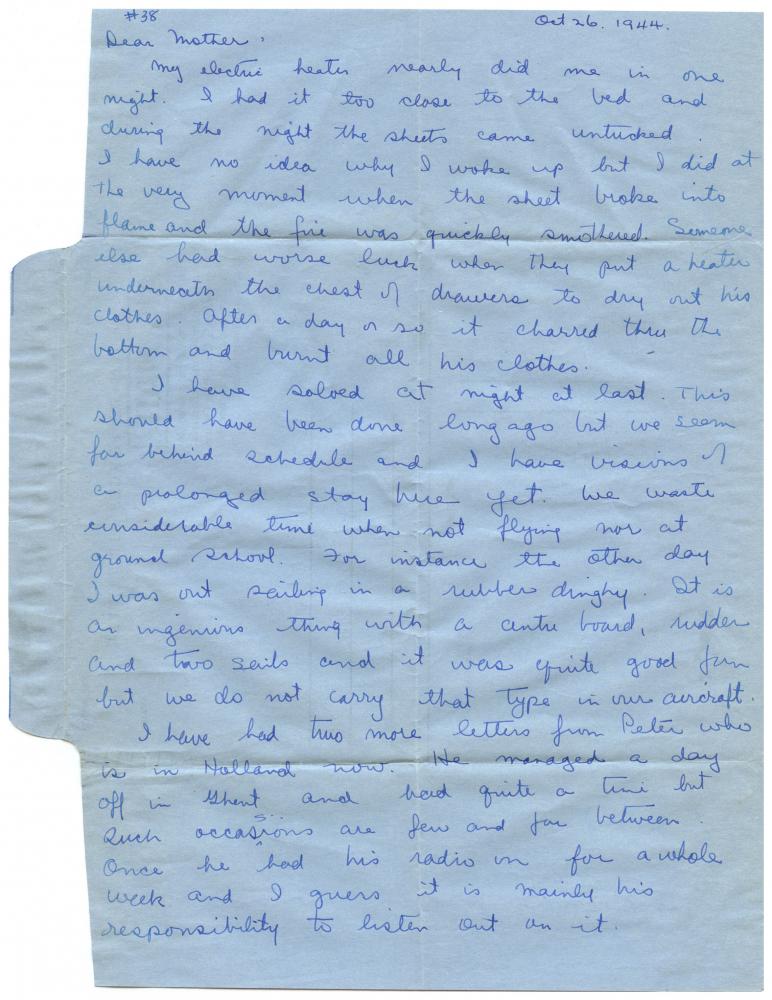 #38
Oct 26. 1944.
Dear Mother,
My electric heater nearly did me in one
night. I had it too close to the bed and
during the night the sheets came untucked.
I have no idea why I woke up but I did at
the very moment when the sheet broke into
flame and the fire was quickly smothered. Someone
else had worse luck when they put a heater
underneath the chest of drawers to dry out his
clothes. After a day or so it charred thru the
bottom and burnt all his clothes.
I have soloed at night at last. This
should have been done long ago but we seem
far behind schedule and I have visions of
a prolonged stay here yet. We waste
considerable time when not flying nor at
ground school. For instance the other day
I was out sailing in a rubber dinghy. It is
an ingenious thing with a centre board, rudder
and two sails and it was quite good fun
but we do not carry that type in our aircraft.
I have had two more letters from Peter who
is in Holland now. He managed a day
off in Ghent and had quite a time but
such occassions are few and far between.
Once he had his radio on for a whole
week and I guess it is mainly his
responsibility to listen out on it.